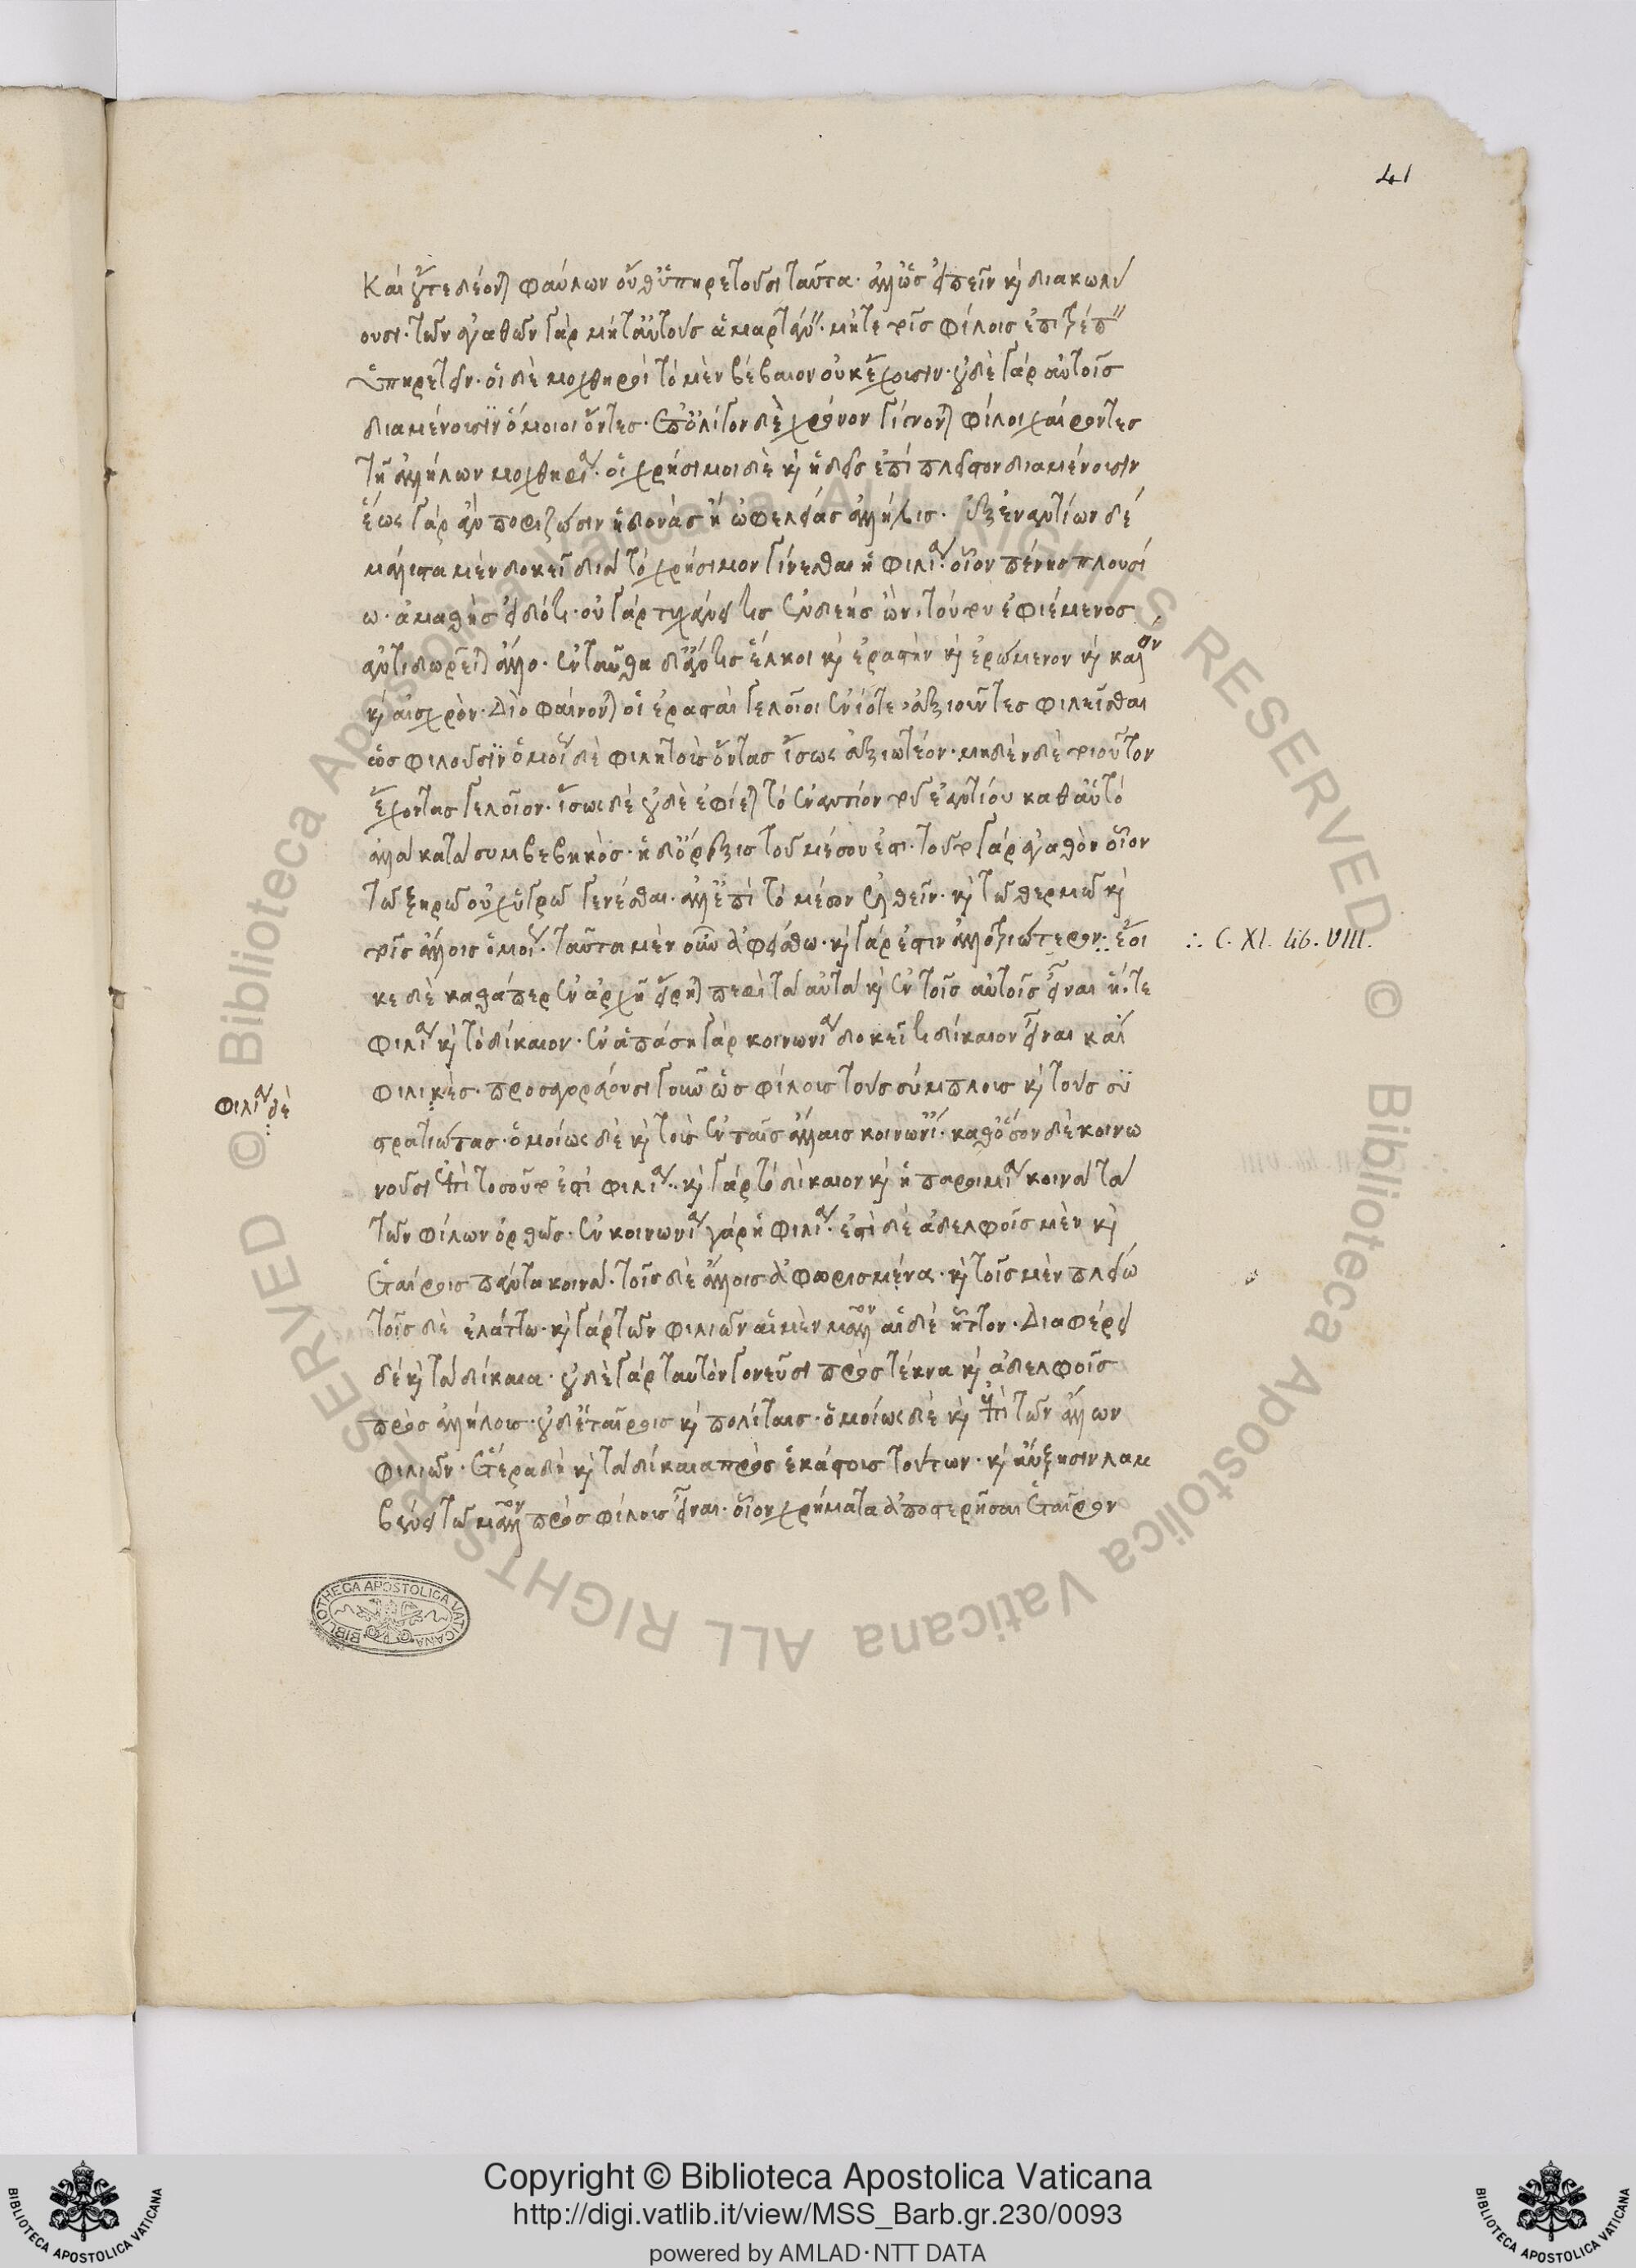 41
Καὶ οὔτε δέονται φαύλων οὔθ' ὑπηρετοῦσι ταῦτα· ἀλλ' ὡς εἰπεῖν καὶ διακωλύ
ουσι· τῶν ἀγαθῶν γὰρ μήτ' αὐτοὺς ἁμαρτάνειν· μήτε τοῖς φίλοις ἐπιτρέπειν
ὑπηρετεῖν· οἱ δὲ μοχθηροὶ τὸ μὲν βέβαιον οὐκ ἔχουσιν· οὐδὲ γὰρ αὑτοῖς
διαμένουσιν ὅμοιοι ὄντες· ἐπ' ὀλίγον δὲ χρόνον γίνονται φίλοι χαίροντες
τῇ ἀλλήλων μοχθηρίᾳ· οἱ χρήσιμοι δὲ καὶ ἡδεῖς ἐπὶ πλεῖον διαμένουσιν
ἕως γὰρ ἂν πορίζωσιν ἡδονὰς ἢ ὠφελείας ἀλλήλοις· ἐξ ἐναντίων δὲ
μάλιστα μὲν δοκεῖ διὰ τὸ χρήσιμον γίνεσθαι ἡ φιλία· οἷον πένης πλουσί
ῳ· ἀμαθὴς εἰδότι· οὗ γὰρ τυγχάνει τις ἐνδεὴς ὤν· τούτου ἐφιέμενος
ἀντιδωρεῖται ἄλλο· ἐνταῦθα δ' ἄν τις ἕλκοι καὶ ἐραστὴν καὶ ἐρώμενον καὶ καλὸν
καὶ αἰσχρὸν· Διὸ φαίνονται οἱ ἐρασταὶ γελοῖοι ἐνίοτε· ἀξιοῦντες φιλεῖσθαι
ὡς φιλοῦσιν ὁμοίως δὲ φιλητοὺς ὄντας ἴσως ἀξιωτέον· μηδὲν δὲ τοιοῦτον
ἔχοντας γελοῖον· ἴσως δὲ οὐδὲ ἐφίεται τὸ ἐναντίον τοῦ ἐναντίου καθ' αὑτό
ἀλλὰ κατὰ συμβεβηκός· ἡ δ' ὄρεξις τοῦ μέσου ἐστι· τοῦτο γὰρ ἀγαθὸν οἷον
τῷ ξηρῷ οὐχ ὑγρῷ γενέσθαι· ἀλλ' ἐπὶ τὸ μέσον ἐλθεῖν· καὶ τῷ θερμῷ καὶ
τοῖς ἄλλοις ὁμοίως· ταῦτα μὲν οὖν ἀφείσθω· καὶ γάρ ἐστιν ἀλλοτριώτερον ∴ ἔοι
∴ C. XI. lib. VIII.
κε δὲ καθάπερ ἐν ἀρχῇ εἴρηται περὶ ταὐτὰ καὶ ἐν τοῖς αὐτοῖς εἶναι ἥ τε
φιλία καὶ τὸ δίκαιον· ἐν ἁπάσῃ γὰρ κοινωνίᾳ δοκεῖ τι δίκαιον εἶναι καὶ
φιλία δὲ
φιλικὲς· προσαγορεύουσι γοῦν ὡς φίλους τοὺς σύμπλους καὶ τοὺς συ
στρατιώτας· ὁμοίως δὲ καὶ τοὺς ἐν ταῖς ἄλλαις κοινωνίαις· καθ' ὅσον δὲ κοινω
νοῦσι ἐπὶ τοσοῦτό ἐστι φιλία·· καὶ γὰρ τὸ δίκαιον καὶ ἡ παροιμία κοινὰ τὰ
τῶν φίλων ὀρθῶς· ἐν κοινωνίᾳ γὰρ ἡ φιλία· ἔστι δὲ ἀδελφοῖς μὲν καὶ
ἑταίροις πάντα κοινά· τοῖς δὲ ἄλλοις ἀφωρισμένα· καὶ τοῖς μὲν πλείω
τοῖς δὲ ἐλάττω· καὶ γὰρ τῶν φιλιῶν αἱ μὲν μᾶλλον αἱ δὲ ἧττον· Διαφέρει
δὲ καὶ τὰ δίκαια· οὐδὲ γὰρ ταὐτὸν γονεῦσι πρὸς τέκνα καὶ ἀδελφοῖς
πρὸς ἀλλήλους· οὐδ' ἑταίροις καὶ πολίταις· ὁμοίως δὲ καὶ ἐπὶ τῶν ἄλλων
φιλιῶν· ἕτερα δὴ καὶ τὰ δίκαια πρὸς ἑκάστους τούτων· καὶ αὔξησιν λαμ
βάνει τῷ μᾶλλον πρὸς φίλους εἶναι· οἷον χρήματα ἀποστερῆσαι ἑταῖρον
BIBLIOTHECA APOSTOLICA VATICANA
© Biblioteca Apostolica Vaticana ALL RIGHTS RESERVED © Biblioteca Apostolica Vaticana ALL RIGHTS RESERVED
Copyright © Biblioteca Apostolica Vaticana
http://digi.vatlib.it/view/MSS_Barb.gr.230/0093
powered by AMLAD·NTT DATA
BIBLIOTECA APOSTOLICA VATICANA
BIBLIOTECA APOSTOLICA VATICANA